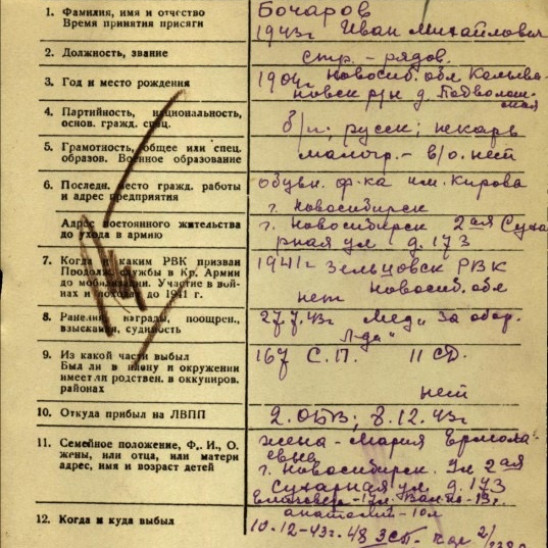 1. Фамилия, имя и отчество
Время принятия присяги
Бочаров
1943г Иван Михайлович
2. Должность, звание
стр. - рядов.
3. Год и место рождения
1904г. Новосиб. обл Колыва-
новск р/н д.
4. Партийность, национальность,
основ. гражд. спец.
б/п; русск; пекарь
5. Грамотность, общее или спец.
образов. Военное образование
малогр. - в/о. нет
6. Последн. место гражд. работы
и адрес предприятия
обувн. ф-ка им. Кирова
г. Новосибирск
Адрес постоянного жительства
до ухода в армию
г. Новосибирск 2ая Суха-
рная ул д. 173
7. Когда и каким РВК призван
Продолж. службы в Кр. Армии
до мобилизации. Участие в вой-
нах и походах до 1941 г.
1941г РВК
Новосиб. обл
нет
8. Ранения, награды, поощрен.,
взыскания, судимость
27.7.43г Мед. "За обор.
Л-да"
9. Из какой части выбыл
Был ли в плену и окружении
имеет ли родствен. в оккупиров.
районах
167 С.П. 11 СД.
нет
10. Откуда прибыл на ЛВПП
2. ОБВ; 8.12.43г
11. Семейное положение, Ф., И., О.
жены, или отца, или матери
адрес, имя и возраст детей
жена - Мария Ермола-
евна
г. Новосибирск. Ул 2ая
Сухарная ул д. 173
- 17л.
Анатолий - 10л
12. Когда и куда выбыл
10.12.43г. 48 ЗСП.